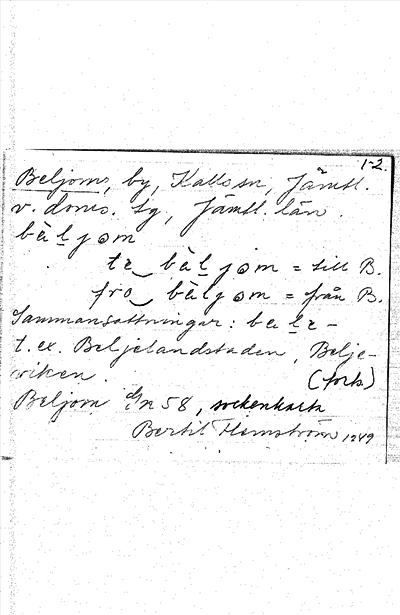 1-2.
Beljom, by, Kalls sn, Jämtl.
v. doms. sg, Jämtl. län.
bàḻjɷm
te bàḻjɷm = till B.
fro bàljɷm = från B.
Sammansättningar: baḻe-
t. ex. Beljelandstaden, Belje-
viken. (forts)
Beljom 58, sockenkarta
Bertil Hemström 1949